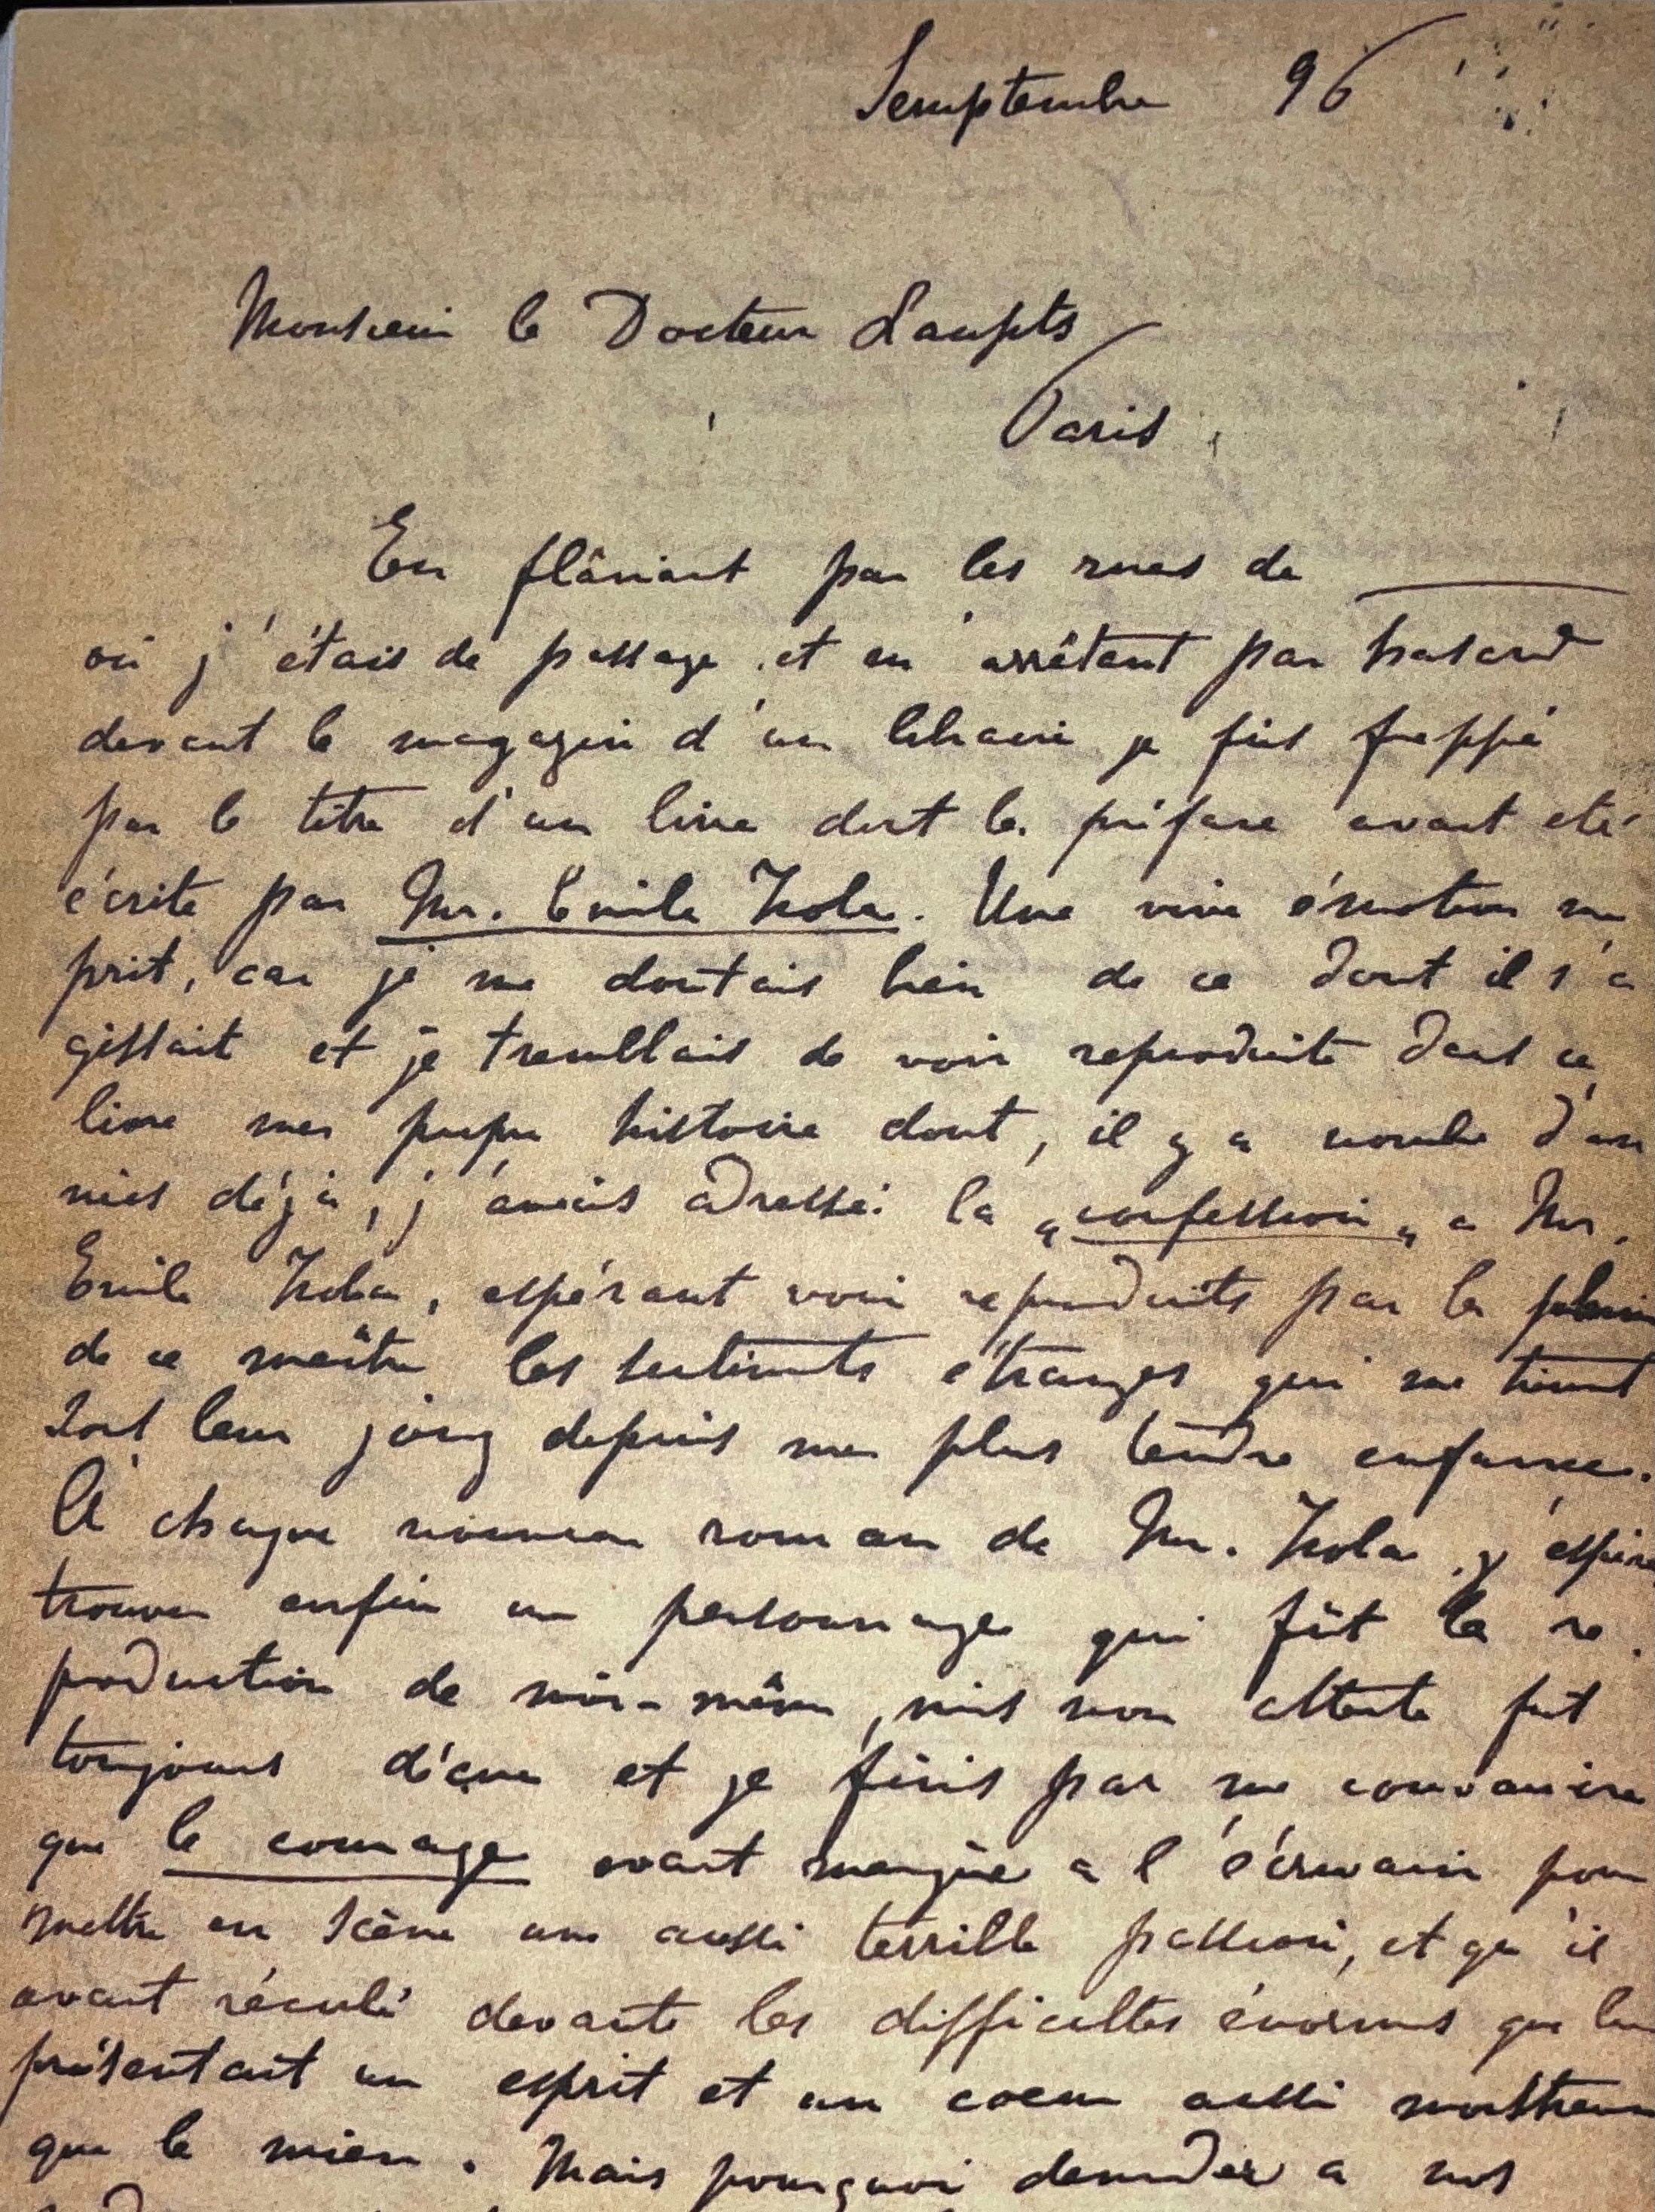 Semptembre 96
Monsieur le Docteur Laupts
Paris
En flâniant par les rues de
où j'étais de passage et en arrêtant par hasard
devant le magazin d'un libraire je fus frappé
par le titre d'un livre dont la préface avait eté
écrite par Mr. Emile Zola. Une vive émotion me
prit, car je me doutais bien de ce dont il s'a
gissait et je tremblais de voir reproduite dans ce
livre ma propre histoire dont, il y a nombre d'an
nées déjà, j'avais adressé la „confession„ a Mr.
Emile Zola, espérant voir reproduits par la plume
de ce maître les sentiments étranges qui me tiennent
sous leur joug depuis ma plus tendre enfance.
A chaque nouveau roman de Mr. Zola j'espérai
trouver enfin un personnage qui fût la re
production de moi-même, mais mon attente fut
toujours déçue et je finis par me convaincre
que le courage avait manqué a l'écrivain pour
mettre en scène une aussi terrible passion, et qu'il
avait réculé devante les difficultes énormes que lui
présentait un esprit et un coeur aussi monstrueux
que le mien. Mais pourquoi demander a nos